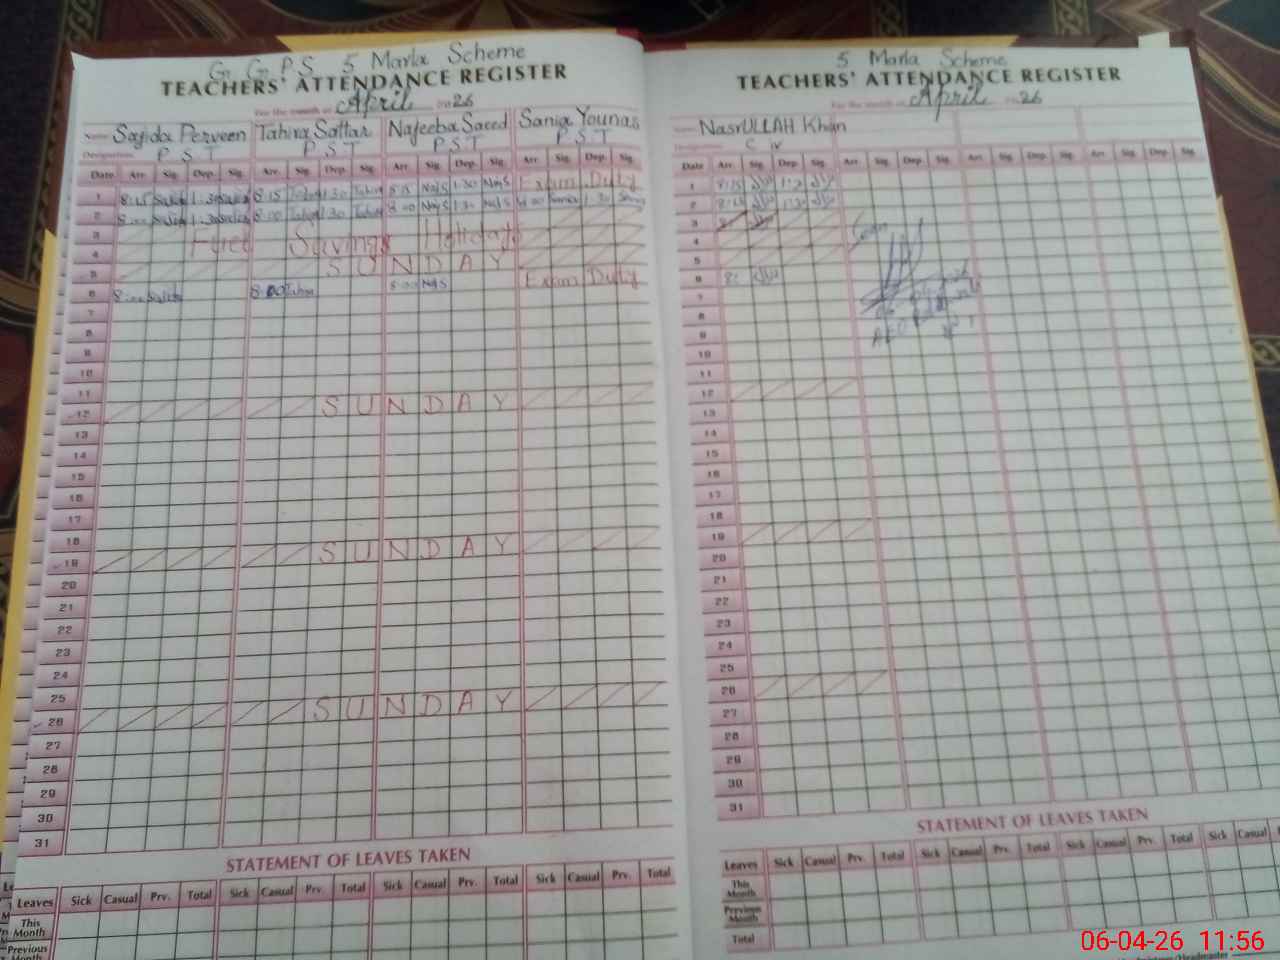 G. G. P. S. 5 Marla Scheme
TEACHERS' ATTENDANCE REGISTER
For the month of April 2026
Name Sajida Perveen Tahira Sattar Najeeba Saeed Sania Younas
Designation P S T P S T P S T P. S. T
Date Arr. Sig. Dep. Sig. Arr. Sig. Dep. Sig. Arr. Sig. Dep. Sig. Arr. Sig. Dep. Sig.
1 8:15 Sajida 1:30 Sajida 8:15 Tahira 1:30 Tahira 8:15 NajS 1:30 NajS Exam Duty
2 8:00 Sajida 1:30 Sajida 8:00 Tahira 1:30 Tahira 8:00 NajS 1:30 NajS 8:00 Sania 1:30 Sania
3 Fuel Savings Holidays
4
5 SUNDAY
6 8:00 Sajida 8:00 Tahira 8:00 NajS Exam Duty
7
8
9
10
11
12 SUNDAY
13
14
15
16
17
18
19 SUNDAY
20
21
22
23
24
25
26 SUNDAY
27
28
29
30
31
STATEMENT OF LEAVES TAKEN
Leaves Sick Casual Prv. Total Sick Casual Prv. Total Sick Casual Prv. Total Sick Casual Prv. Total
This Month
Previous Month
5 Marla Scheme
TEACHERS' ATTENDANCE REGISTER
For the month of April 2026
Name NasrULLAH Khan
Designation C IV
Date Arr. Sig. Dep. Sig. Arr. Sig. Dep. Sig. Arr. Sig. Dep. Sig. Arr. Sig. Dep. Sig.
1 8:15
2
3
4
5
6
7
8
9
10
11
12
13
14
15
16
17
18
19
20
21
22
23
24
25
26
27
28
29
30
31
AEO
STATEMENT OF LEAVES TAKEN
Leaves Sick Casual Prv. Total Sick Casual Prv. Total Sick Casual Prv. Total Sick Casual
This Month
Previous Month
Total
06-04-26 11:56